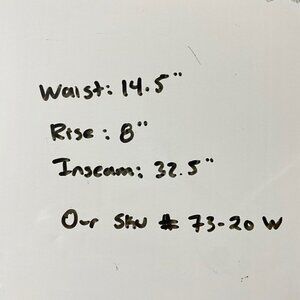 Waist: 14.5"
Rise: 8"
Inseam: 32.5"
Our SKU # 73-20 W